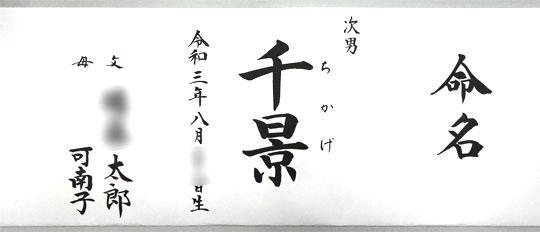 命名
次男
ちかげ
千景
令和三年八月 日生
父 太郎
母 可南子